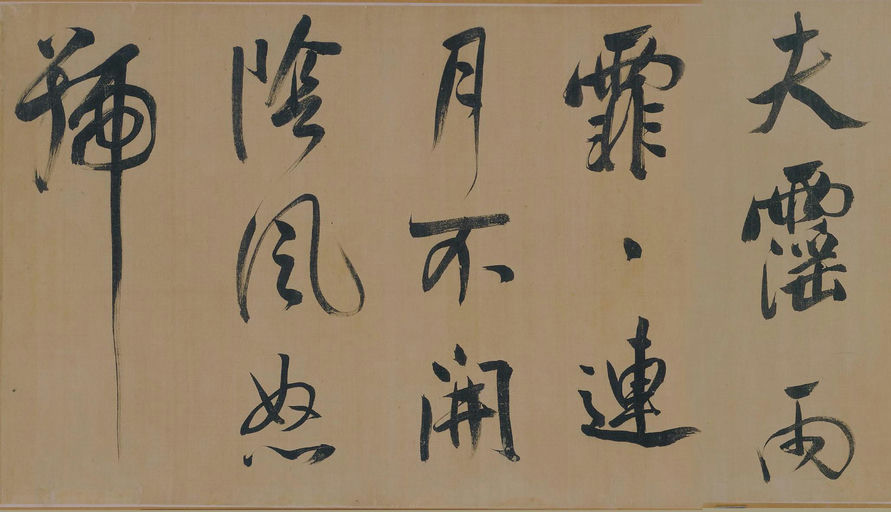 夫霪雨
霏、連
月不開
陰風怒
號